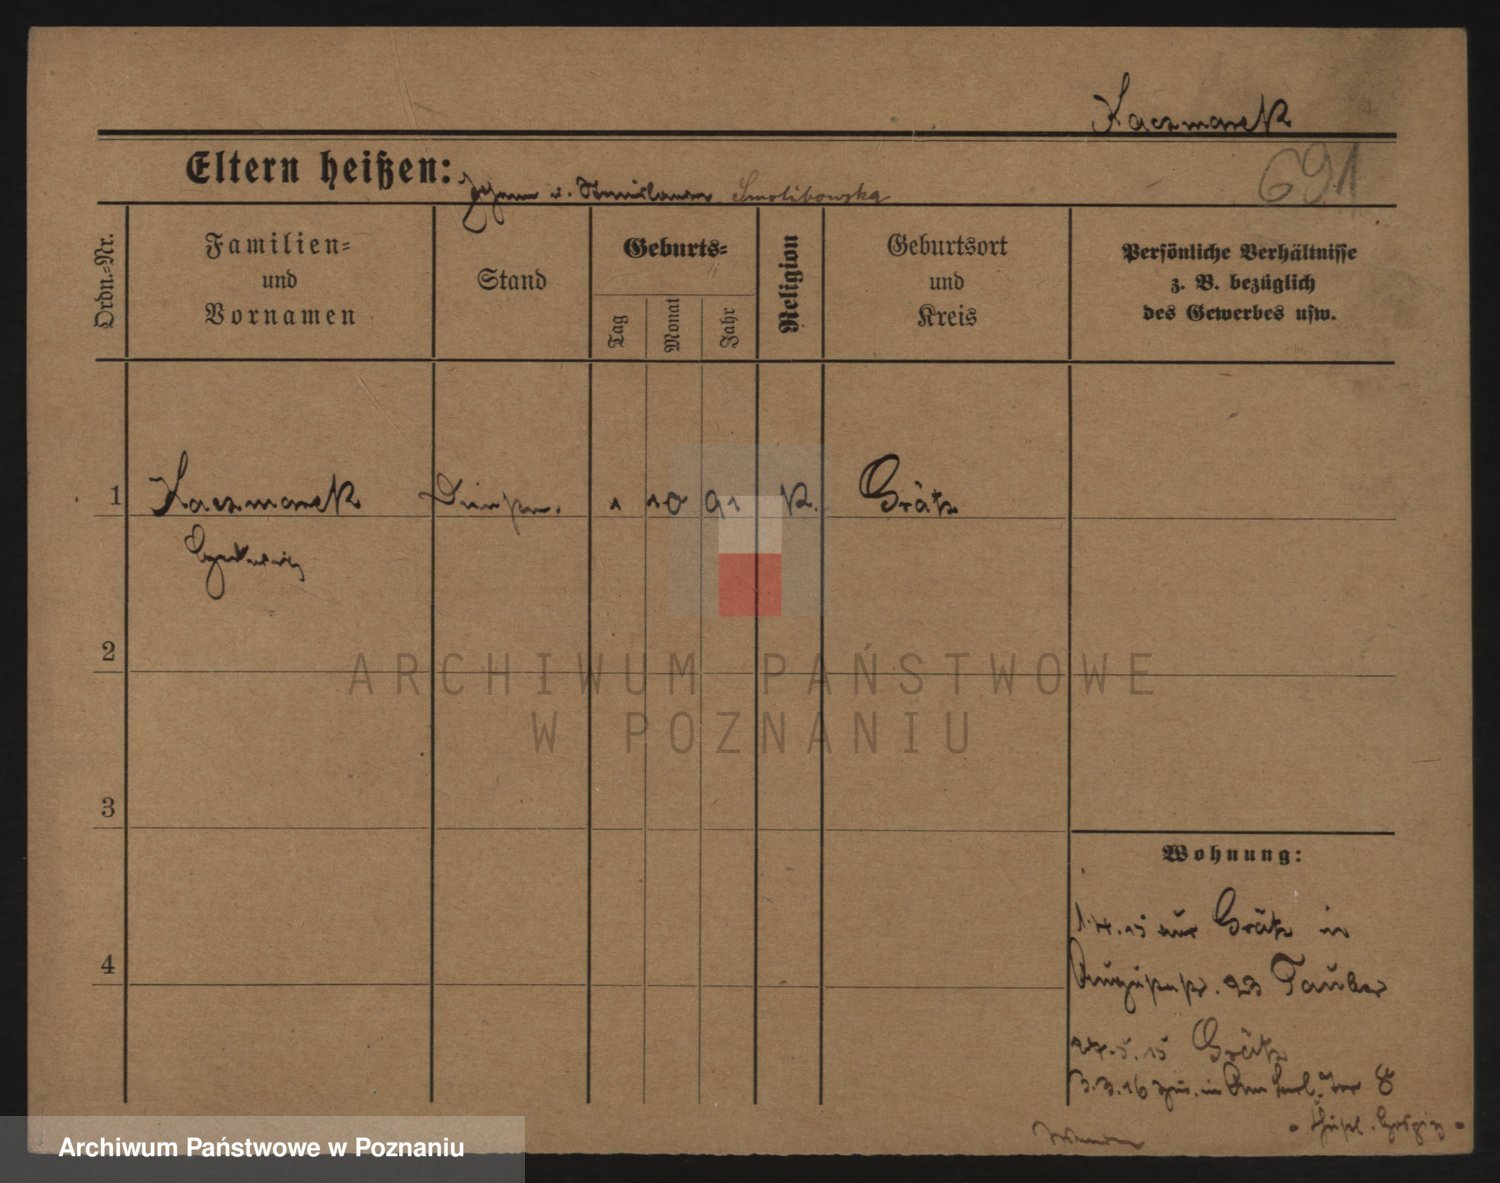 Kaczmarek
691
Eltern heißen: Johann u. Stanislawa Smolibowska
Ordn.=Nr.
Familien=
und
Vornamen
Stand
Geburts=
Tag
Monat
Jahr
Religion
Geburtsort
und
Kreis
Persönliche Verhältnisse
z. B. bezüglich
des Gewerbes usw.
1 Kaczmarek 1 10 91 K. Grätz
Hedwig
2
ARCHIWUM PAŃSTWOWE
W POZNANIU
3
Wohnung:
1.4.15 aus Grätz in
4
Augustastr. 23 Tauber
24.5.15 Grätz
3.3.16 zur. in Am Berl. Tor 8
Archiwum Państwowe w Poznaniu